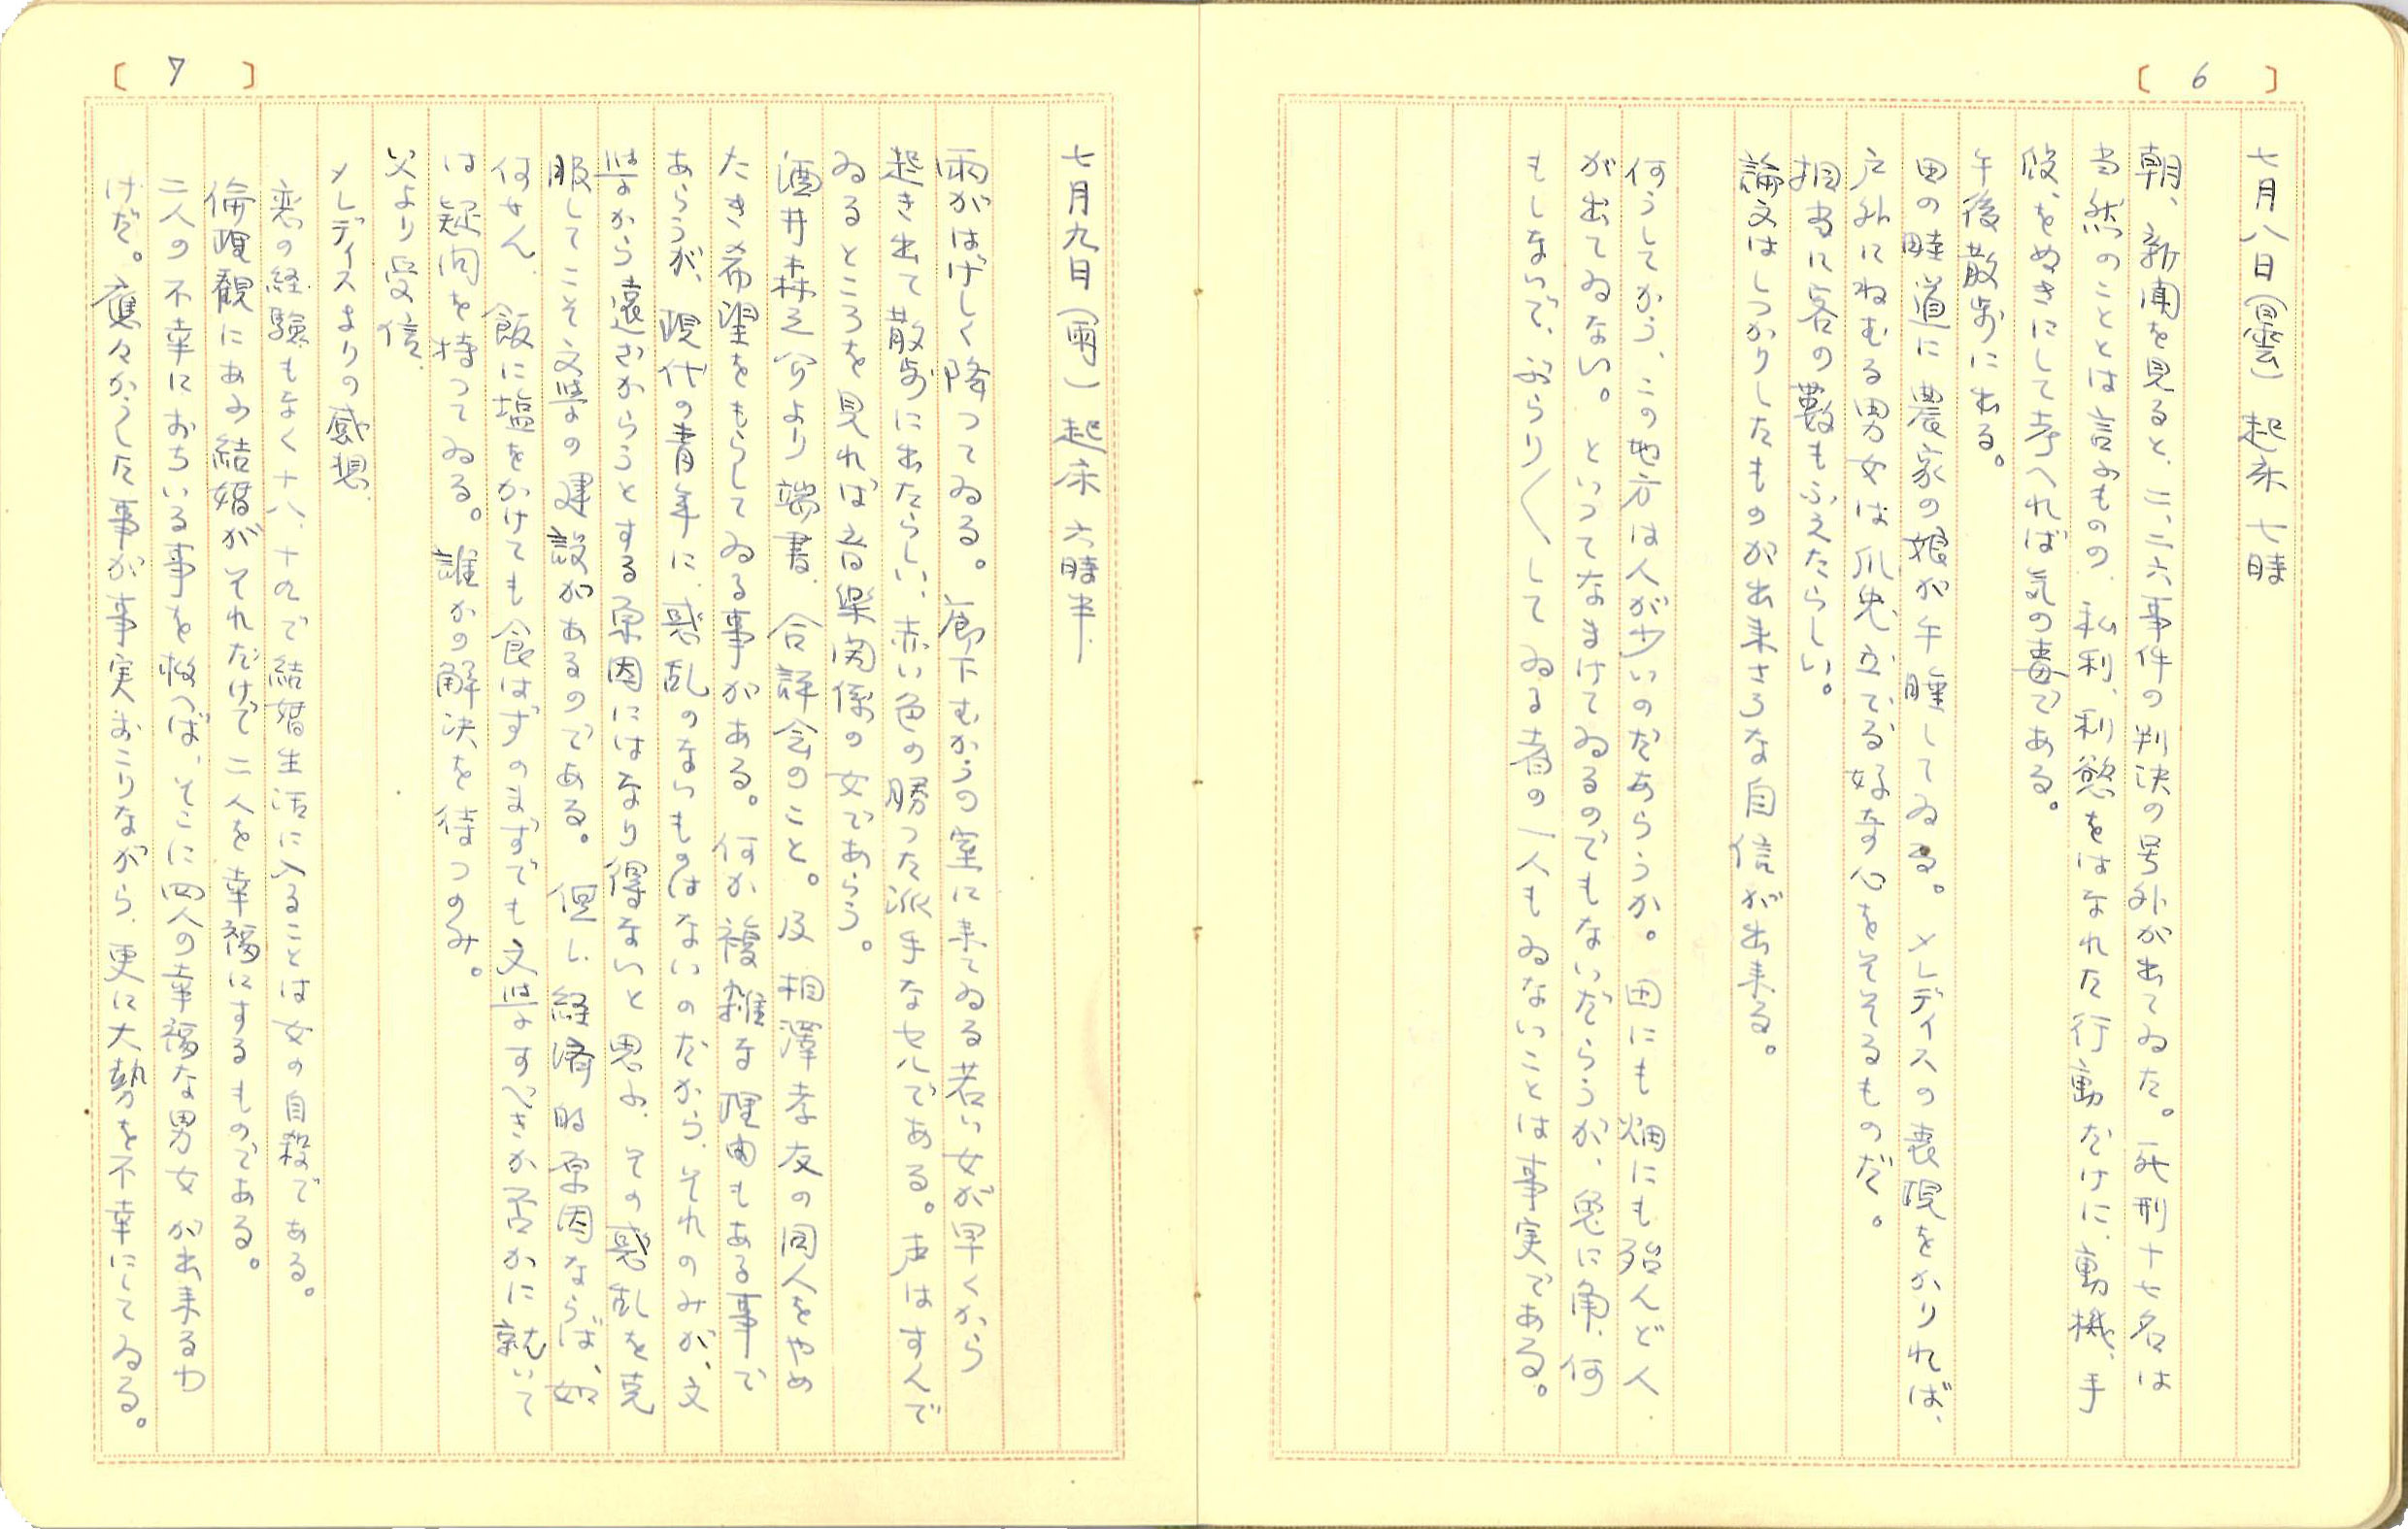 〔 6 〕
七月八日(曇) 起床 七時
朝、新聞を見ると、二、二六事件の判決の号外が出てゐた。死刑十七名は
当然のことは言ふものの、私利、利慾をはなれた行動だけに、動機、手
段、をぬきにして考へれば気の毒である。
午後散歩に出る。
田の畦道に農家の娘が午睡してゐる。メレディスの表現をかりれば、
戸外にねむる男女は爪先立でる好な心をそそるものだ。
相当に客の数もふえたらしい。
論文はしつかりしたものが出来さうな自信が出来る。
何うしてから、この地方は人が少いのだあらうか。田にも畑にも殆んど人
が出てゐない。といつてなまけてゐるのでもないだらうが、兎に角、何
もしないで、ぶらり〱してゐる者の一人もゐないことは事実である。
〔 7 〕
七月九日(雨) 起床 六時半
雨がはげしく降つてゐる。廊下むかうの室に来てゐる若い女が早くから
起き出て散歩に出たらしい、赤い色の勝つた派手なセルである。声はすんで
ゐるところを見れば音楽関係の女であらう。
酒井森之介より端書、合評会のこと。及 相澤孝友の同人をやめ
たき希望をもらしてゐる事がある。何か複雑な理由もある事で
あらうが、現代の青年に、惑乱のないものはないのだから、それのみが、文
学から遠ざからうとする原因にはなり得ないと思ふ、その惑乱を克
服してこそ文学の建設があるのである。但し経済的原因ならば、如
何せん、飯に塩をかけても食はずのまずでも文学すべきか否かに就いて
は疑問を持つてゐる。誰かの解決を待つのみ。
父より受信、
メレディスよりの感想、
恋の経験もなく十八、十九で結婚生活に入ることは女の自殺である。
倫理観にあふ結婚がそれだけで二人を幸福にするものである。
二人の不幸におちいる事を救へば、そこに四人の幸福な男女が出来るわ
けだ。應々かうした事が事実おこりながら、更に大勢を不幸にしてゐる。